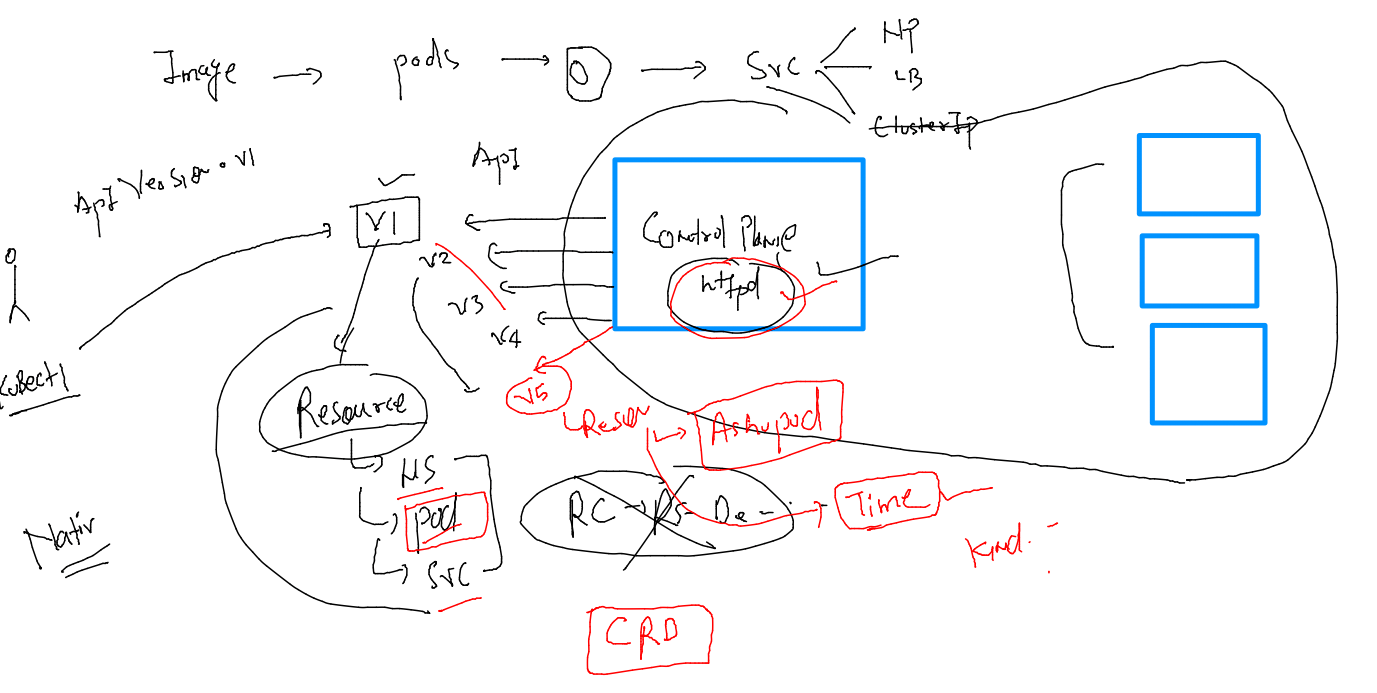 Image → pods → O → Svc
NP
LB
ClusterIp
ApI Version • V1
ApI
V1
V2
V3
V4
V5
Control Plane
httpd
Kubectl
Resource
NS
pod
SVC
Nativ
Reson
Ashupod
RC → RS - De -
Time
Kind :
CRD